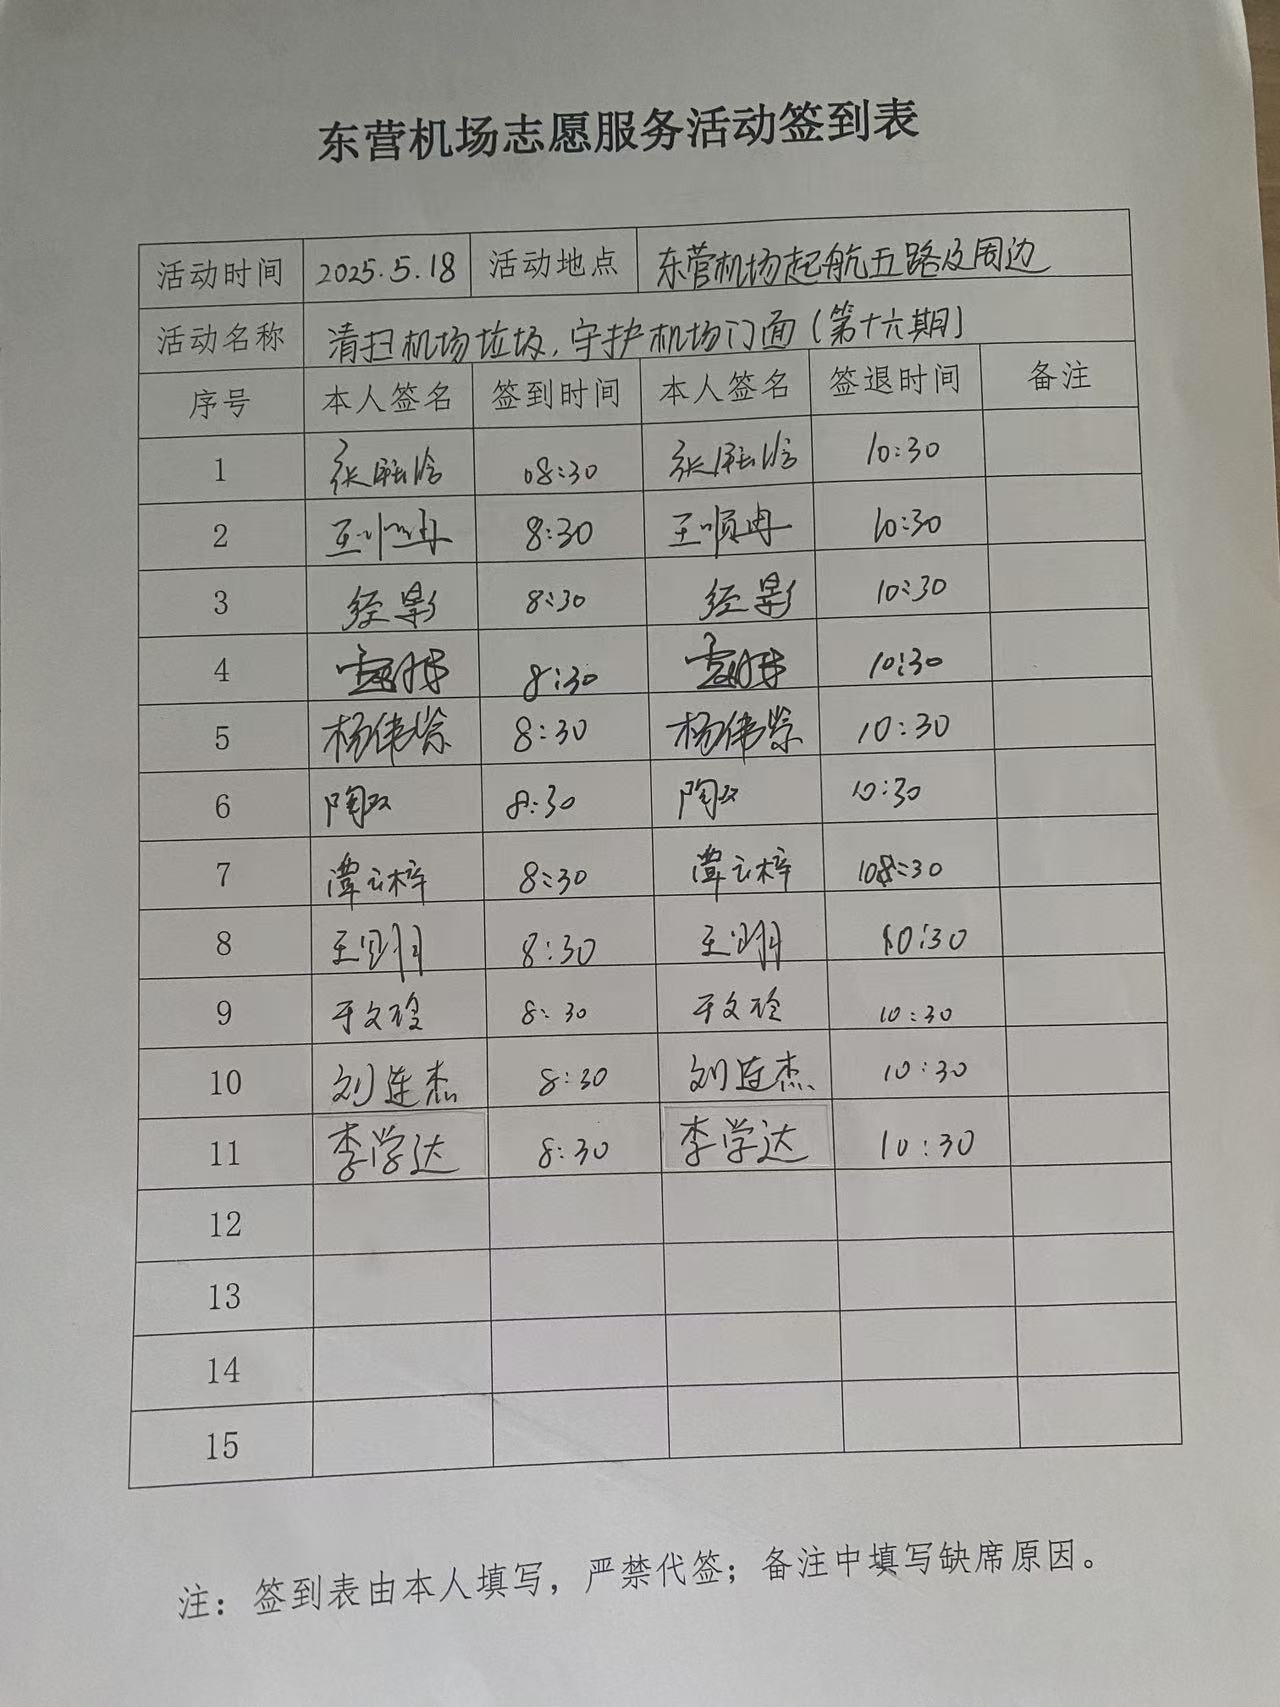 东营机场志愿服务活动签到表
活动时间 2025.5.18 活动地点 东营机场起航五路及周边
活动名称 清扫机场垃圾,守护机场门面(第十六期)
序号 本人签名 签到时间 本人签名 签退时间 备注
1 张 08:30 张 10:30
2 王顺冉 8:30 王顺冉 10:30
3 经影 8:30 经影 10:30
4 8:30 10:30
5 杨伟 8:30 杨伟 10:30
6 陶双 8:30 陶双 10:30
7 覃云梓 8:30 覃云梓 108:30
8 王 8:30 王 10:30
9 于文 8:30 于文 10:30
10 刘连杰 8:30 刘连杰 10:30
11 李学达 8:30 李学达 10:30
12
13
14
15
注：签到表由本人填写，严禁代签；备注中填写缺席原因。